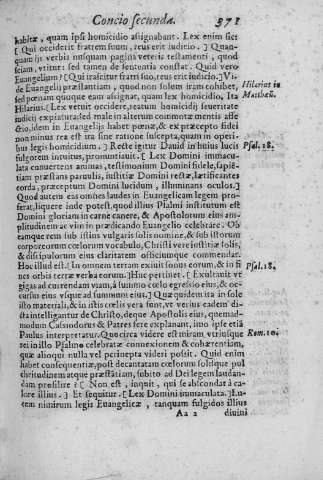 Concio secunda. 371
habitæ, quam ipsi homicidio asignabant. Lex enim sicē
[Qui occiderit fratrem suum, reus erit iudicio.] Quan-
quam ijs verbis nusquam pagina veteris testamenti, quod
sciam, vtitur: sed tamen de sententia constat. Quid vero
Euangelium? [Qui irascitur fratri suo, reus erit iudicio.] Vi-
de Euangelij præstantiam, quod non solum iram cohibet,
sed pœnam quoque eam assignat, quam lex homicidio, Ita
Hilarius in
Matthæū.
Hilarius. [Lex vetuit occidere, reatum homicidij seueritate
iudicij expiatura: sed male in alterum commotæ mentis affe
ctio, idem in Euangelijs habet pœnæ, & ex præcepto fidei
non minus rea est ira sine ratione suscepta, quam in operi-
bus legis homicidium.] Recte igitur Dauid in huius lucis
Psal. 18.
fulgorem intuitus, pronuntiauit. [Lex Domini immacu-
lata conuertens animas, testimonium Domini fidele, sapiē-
tiam præstans paruulis, iustitiæ Domini rectæ, lætificantes
corda, præceptum Domini lucidum, illuminans oculos.]
Quod autem eas omnes laudes in Euangelicam legem pro-
ferat, liquere inde potest, quod illius Psalmi institutum est
Domini gloriam in carne canere, & Apostolorum eius am-
plitudinem ac vim in prædicando Euangelio celebrare. Ob
eamque rem sub istius vulgaris solis nomine, & sub istorum
corporeorum cœlorum vocabulo, Christi vere iustitiæ solis,
& discipulorum eius claritatem officiumque commendat.
Hoc illud est. [In omnem terram exiuit sonus eorum, & in fi
Psal. 18.
nes orbis terræ verba eorum.] Huc pertinet. [Exultauit vt
gigas ad currendam viam, à summo cœlo egressio eius, & oc-
cursus eius vsque ad summum eius.] Quæ quidem ita in sole
isto materiali, & in istis cœlis vera sunt, vt verius eadem di-
cta intelligantur de Christo, deque Apostolis eius, quemad-
modum Cassiodorus & Patres fere explanant, imo ipse etiā
Rom. 10.
Paulus interpretatur. Quo circa videre est miram vtriusque
rei in illo Psalmo celebratæ connexionem & cohærentiam,
quæ alioqui nulla vel perinepta videri possit. Quid enim
habet consequentiæ, post decantatam cœlorum solisque pul
chritudinem atque præstātiam, subito ad Dei legem laudan-
dam prosilire? [Non est, inquit, qui se abscondat à ca-
lore illius.] Et sequitur. [Lex Domini immaculata.] Lu-
cem nimirum legis Euangelicæ, tanquam fulgidos illius
Aa 2 diuini